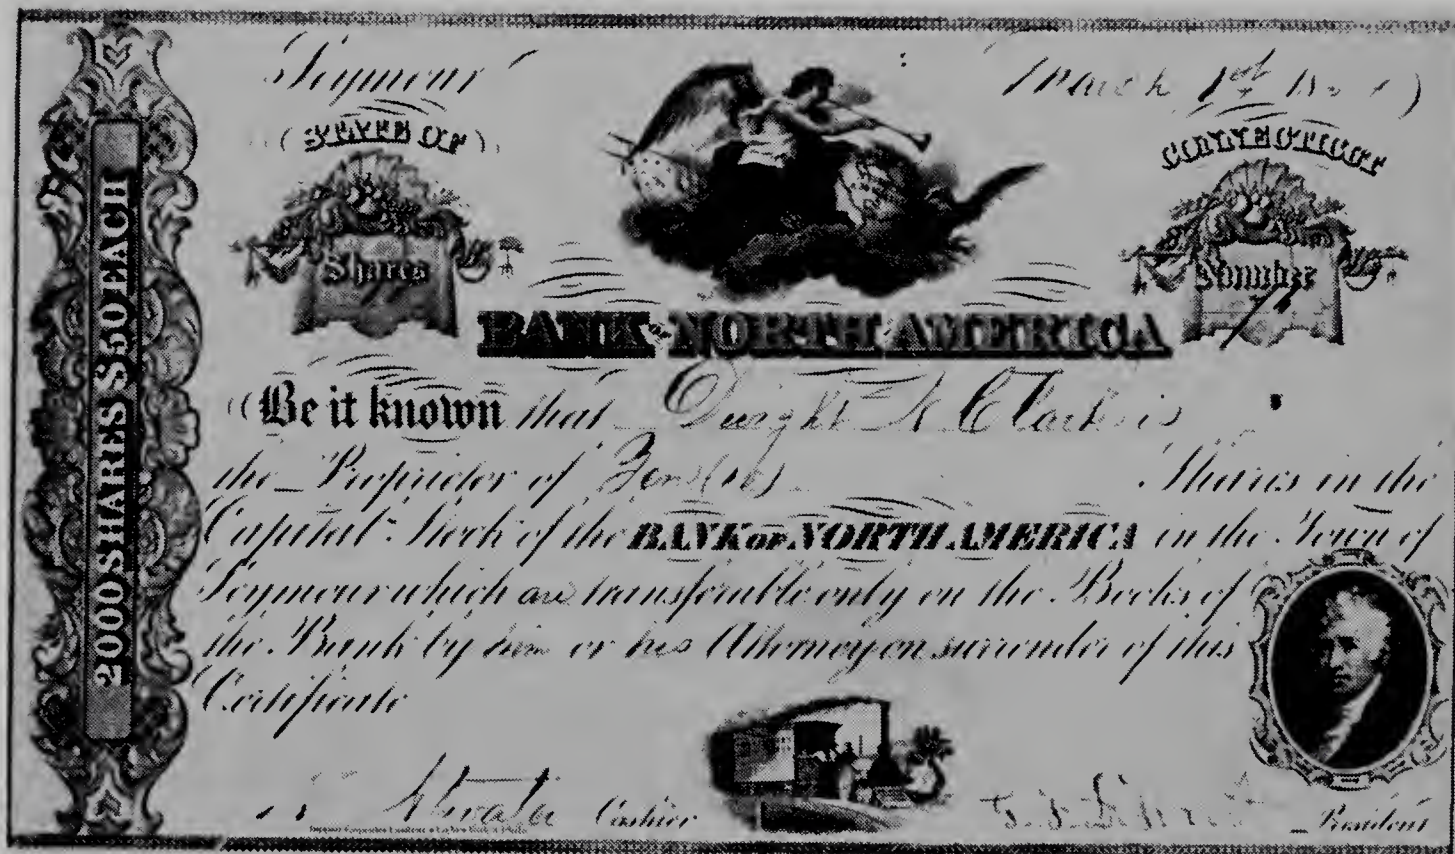 Seymour March 1st
STATE OF CONNECTICUT
Shares Number
BANK OF NORTH AMERICA
Be it known that Dwight Clark is
the Proprietor of Ten (10) Shares in the
Capital Stock of the BANK OF NORTH AMERICA in the Town of
Seymour which are transferable only on the Books of
the Bank by him or his Attorney on surrender of this
Certificate
Cashier President
2000 SHARES $50 EACH